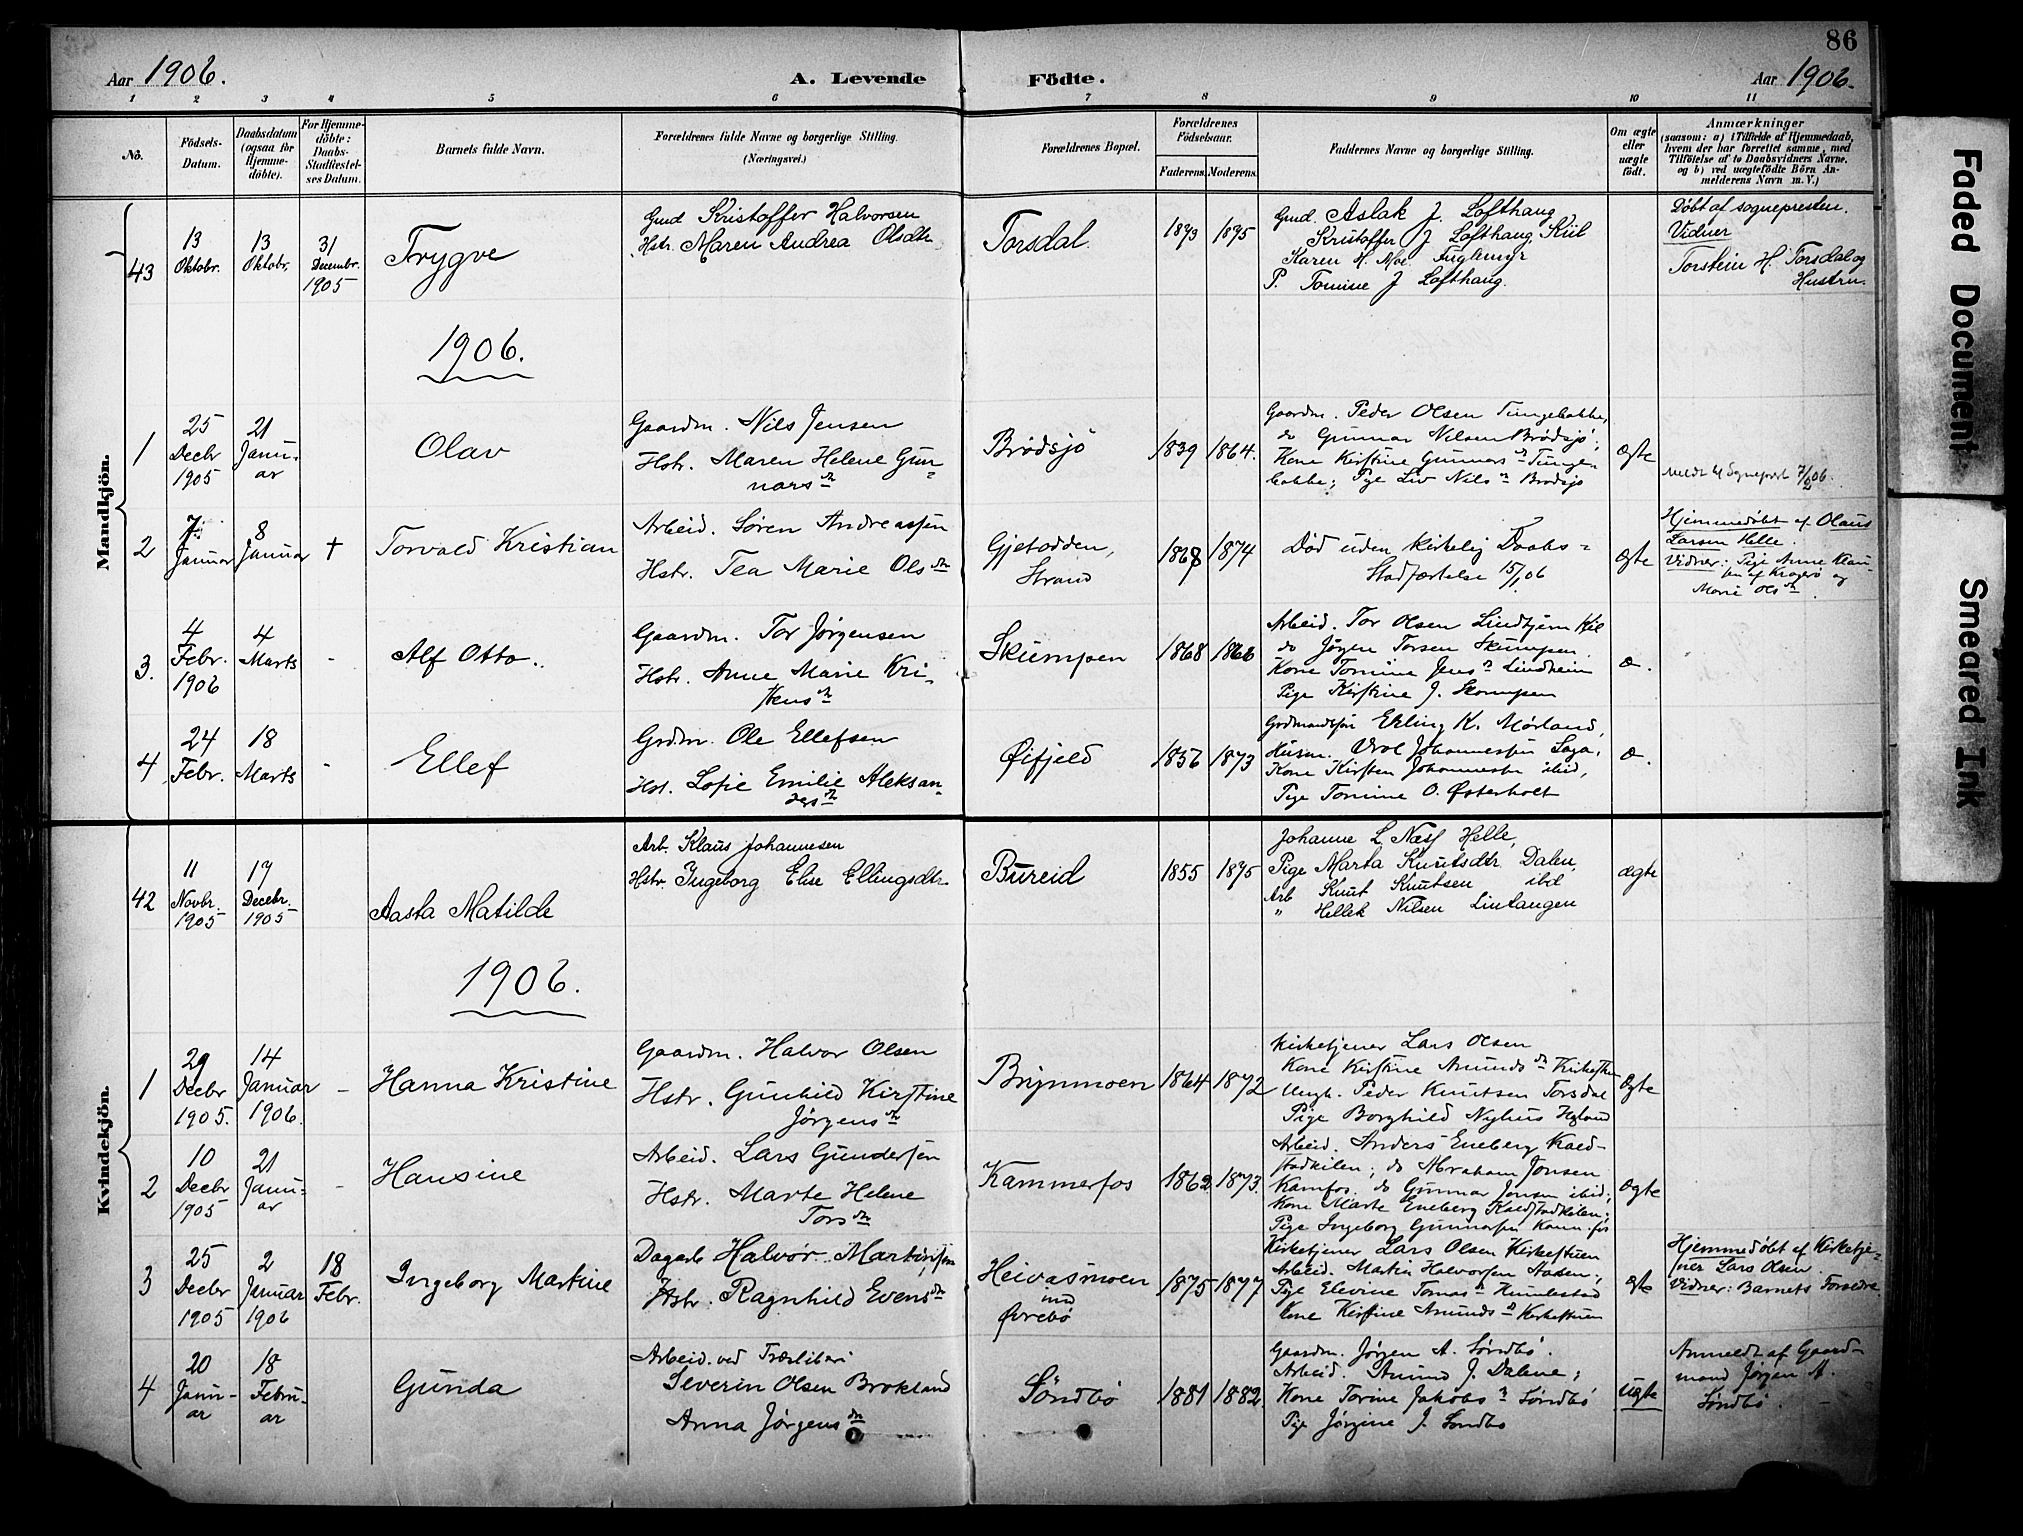 86
Aar 1906. A. Levende Födte. Aar 1906.
1 2 3 4 5 6 7 8 9 10 11
Nô. Födsels-Datum. Daabsdatum (ogsaa för Hjemme-döbte). For Hjemme-döbte: Daabs-Stadfæstel-ses Datum. Barnets fulde Navn. Forældrenes fulde Navne og borgerlige Stilling. (Næringsvei.) Forældrenes Bopæl. Forældrenes Födselsaar. Faderens. Moderens. Faddernes Navne og borgerlige Stilling. Om ægte eller uægte födt. Anmærkninger (saasom: a) i Tilfælde af Hjemmedaab, hvem der har forrettet samme, med Tilföielse af to Daabsvidners Navne. og b) ved uægtefödte Börn An-melderens Navn m. V.)
Mandkjön.
43 13 Oktobr. 13 Oktobr. 31 Decembr. 1905 Trygve
Gmd Kristoffer Halvorsen
Hstr. Maren Andrea Olsdtr
Torsdal. 1873 1875
Gmd. Aslak J. Lofthaug
Kristoffer J Lofthaug Kiil
Karen H. Moe Fuglemyr
P. Tomine J Lofthaug.
Døbt af sognepresten.
Vidner
Torstein H. Torsdal og
Hustru.
1906.
1 25 Decbr 1905 21 Janu-ar Olav
Gaardm. Nils Jensen
Hstr. Maren Helene Gun-
nars dtr
Brødsjø 1839 1864.
Gaardm. Peder Olsen Tungebakke,
do Gunnar Nilsen Brødsjø;
Kone Kirstine Gunnars dtr Tunge-
bakke; Pige Liv Nils dtr Brødsjø
ægte
Meldt til Sogneprest 7/2 06.
2 7 Januar 8 Januar † Torvald Kristian
Arbeid. Søren Andreassen
Hstr. Tea Marie Ols dtr
Gjetodden,
Strand
1868 1874
Død uden kirkelig Daabs-
Stadfæstelse 15/1 06
ægte
Hjemmedøbt af Olaus
Larsen Helle.
Vidner: Pige Anne
af Kragerø og
Marie Ols dtr.
3. 4 Febr. 1906 4 Marts - Alf Otto.
Gaardm. Tor Jørgensen
Hstr. Anne Marie Kri-
stens dtr
Skumpen 1868 1866
Arbeid. Tor Olsen Lindtjern Kil
do Jørgen Torsen Skumpen.
Kone Tomine Jens dtr Lindheim
Pige Kirstine J. Skumpen
æ.
4 24 Febr. 18 Marts - Ellef
Grdm. Ole Ellefsen
Hst. Sofie Emilie Aleksan-
ders dtr
Øifjeld 1856 1873
Grdmandssøn Erling K. Mørland,
Husm. Johannessen Laga,
Kone Kirsten Johannesdtr ibid,
Pige Tomine O. Østerholt
æ.
Kvindekjön.
42 11 Novbr. 1905 17 Decebr. 1905 Aasta Matilde
Arb. Klaus Johannesen
Hstr. Ingeborg Elise Ellingsdtr
Bureid 1855 1875
Johanne L. Næss Helle,
Pige Marta Knutsdtr Dalen,
Arb Knut Knutsen ibd
" Hellek Nilsen Lintangen
ægte
1906.
1 29 Decbr 1905. 14 Januar 1906. - Hanna Kristine
Gaardm. Halvor Olsen
Hstr. Gunhild Kirstine
Jørgens dtr
Brynmoen 1864 1872
Kirketjener Lars Olsen
Kone Kirstine Amunds dtr Kirkestuen
Ungk. Peder Knutsen Torsdal
Pige Borghild Nyhus
ægte
2 10 Decbr 1905 21 Janu-ar - Hansine
Arbeid. Lars Gundersen
Hstr. Marte Helene
Tors dtr
Kammerfos 1862 1873.
Arbeid. Anders Eneberg Kald-
stadkilen; do Abraham Jonsen
Kamfos. do Gunnar Jonsen ibid;
Kone Marte Eneberg Kaldstadkilen;
Pige Ingeborg Gunnarsen Kam.fos
ægte
3 25 Decbr 1905 2 Januar 1906 18 Febr. Ingeborg Martine
Dagarb Halvor Martinsen
Hstr. Ragnhild Evens dtr
Heivasmoen
ind
Øvrebø
1875 1877
Kirketjener Lars Olsen Kirkestuen
Arbeid. Martin Halvorsen Aasen;
Pige Elevine Tomas dtr Humlestad
Kone Kirstine Amunds dtr Kirkestuen
ægte
Hjemmedøbt af Kirketje-
ner Lars Olsen.
Vidner: Barnets Forældre
4 20 Janu-ar 18 Febru-ar Gunda
Arbeid. ved Træsliberi
Severin Olsen Brokland
Anna Jørgens dtr
Søndbø 1881 1882.
Gaardm. Jørgen A. Søndbø.
Arbeid. Amund J. Dalene;
Kone Torine Jakobs dtr Søndbø
Pige Jørgine J. Søndbø
Uægte
Anmeldt af Gaard-
mand Jørgen A.
Søndbø.
Faded Document
Smeared Ink